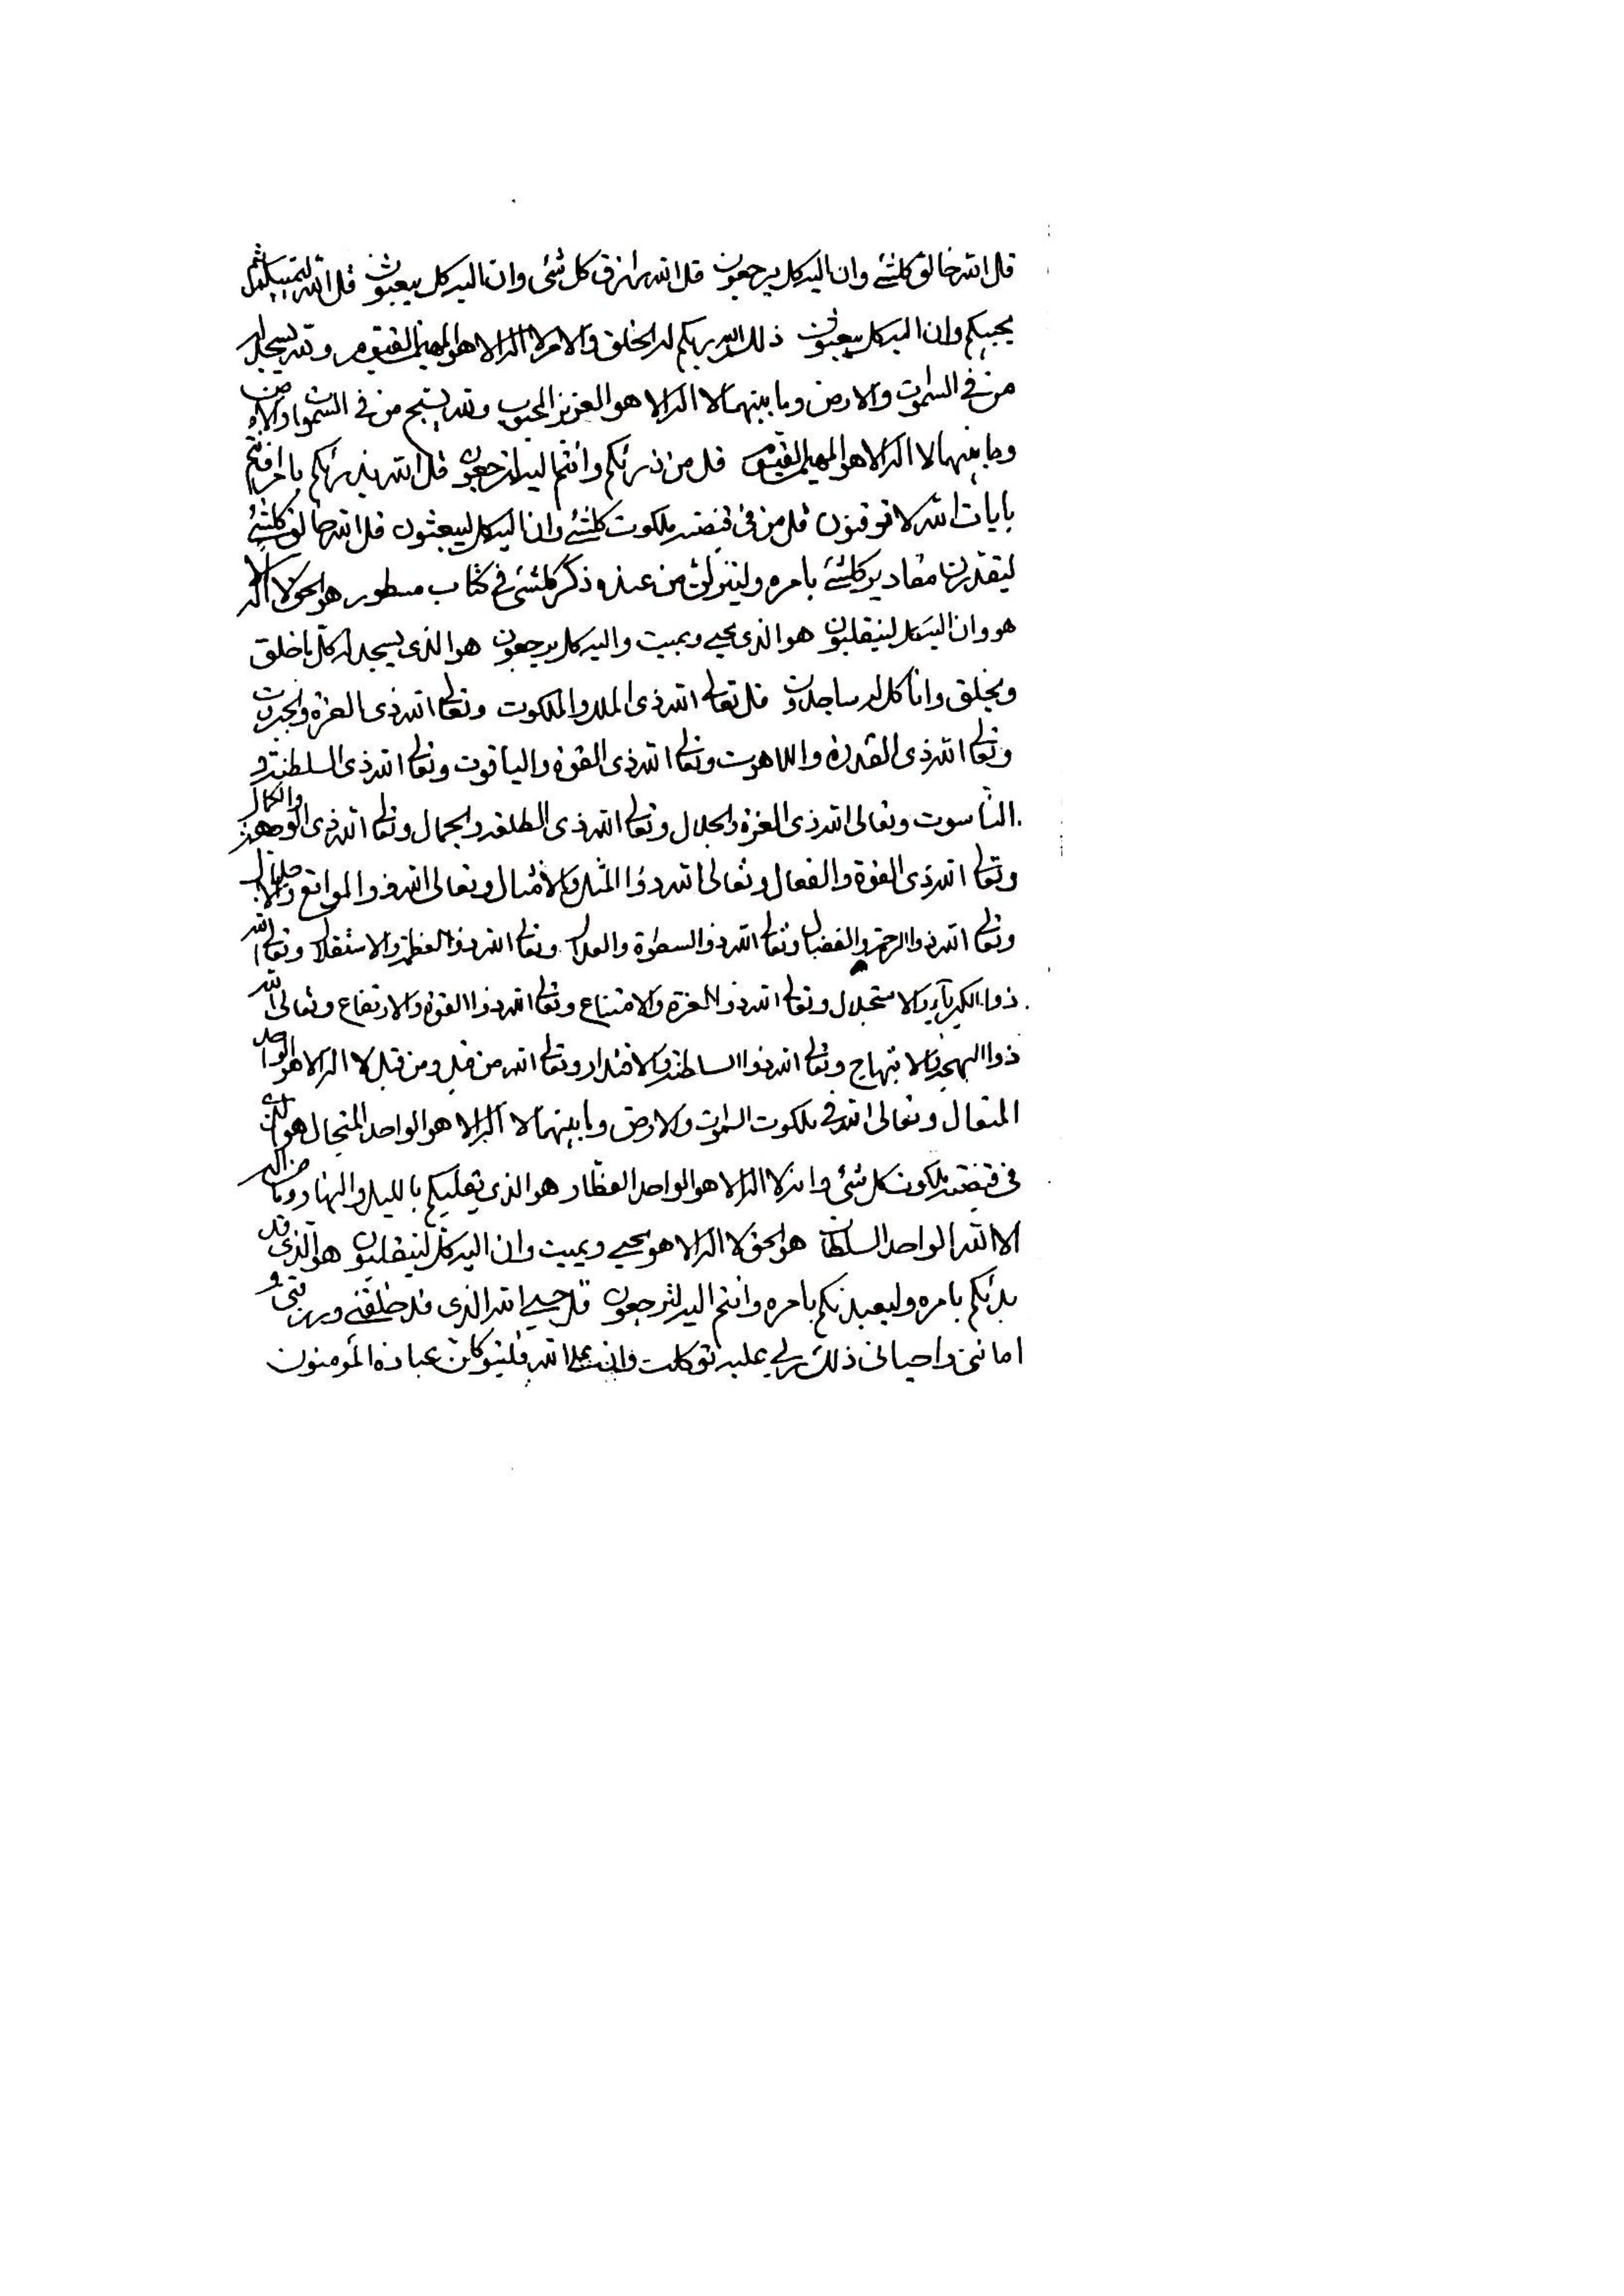 قل الله خالق كلشئ وان اليه كل يرجعون قل الله رازق كل شئ وان اليه كل يبعثون قل الله ثم
يحييكم وان اليه كل يبعثون ذلك الله ربكم له الخلق والامر لا اله الا هو المهيمن القيوم ولله يسجد له
من في السموات والارض وما بينهما لا اله الا هو العزيز المحبوب ولله يسبح من في السموات والارض
وما بينهما لا اله الا هو المهيمن القيوم قل من ذرئكم وانتم اليه لترجعون قل الله يذرئكم بامره افانتم
بايات الله لا توقنون قل من في قبضته ملكوت كلشئ وان اليه كل ليبعثون قل الله خالق كلشئ
ليقدرن مقادير كلشئ بامره ولينزلن من عنده ذكر كلشئ في كتاب مسطور هو الحق لا اله الا
هو وان اليه كل لينقلبون هو الذي يحيي ويميت واليه كل يرجعون هو الذي يسجد له كل ما خلق
ويخلق وانا كل له ساجدون قل تعالى الله ذي الملك والملكوت وتعالى الله ذي العزة والجبروت
وتعالى الله ذي القدرة واللاهوت وتعالى الله ذي القوة والياقوت وتعالى الله ذي السلطنة و
الناسوت وتعالى الله ذي العزة والجلال وتعالى الله ذي الطلعة والجمال وتعالى الله ذي الوجهة والكمال
وتعالى الله ذي القوة والفعال وتعالى الله ذوا المثل والامثال وتعالى الله ذو المواقع والاجلال
وتعالى الله ذوا الرحمة والفضال وتعالى الله ذو السطوة والعدال وتعالى الله ذو العظمة والاستقلال وتعالى الله
ذوا الكبرياء والاستجلال وتعالى الله ذو العزة والامتناع وتعالى الله ذوا القوة والارتفاع وتعالى الله
ذوا البهجة والابتهاج وتعالى الله ذوا السلطنة والاقتدار وتعالى الله من قبل ومن قبل لا اله الا هو الواحد
المتعال وتعالى الله في ملكوت السموات والارض وما بينهما لا اله الا هو الواحد المتجال هو الذي
في قبضته ملكوت كل شئ وانه لا اله الا هو الواحد هو الذي يقلبكم بالليل والنهار وما من اله
الا الله الواحد السلطان هو الحق لا اله الا هو يحيي ويميت وان اليه كل لينقلبون هو الذي قد
بدئكم بامره وليعيدنكم بامره وانتم اليه لترجعون قل حسبي الله الذي قد خلقني ورزقني و
اماتني واحياني ذلك ربي عليه توكلت وان على الله فليتوكلن عباده المؤمنون